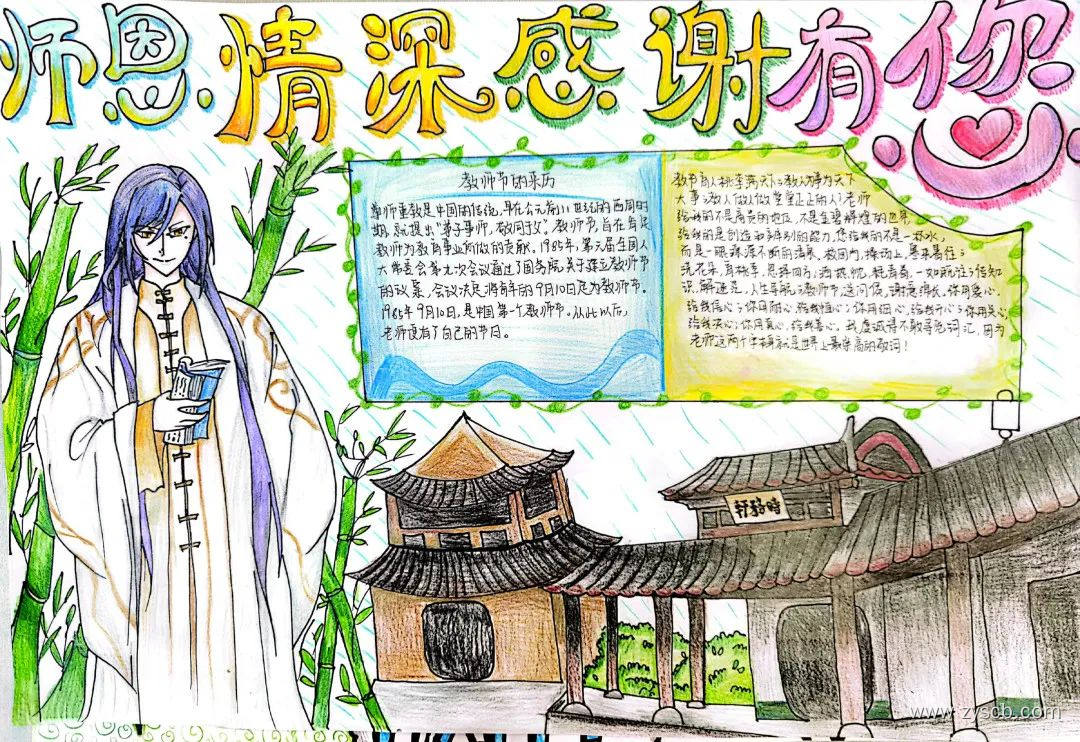 师恩情深感谢有您
教师节的来历
尊师重教是中国的传统，早在公元前11世纪的西周时
期，就提出"弟子事师，敬同于父"。教师节，旨在肯定
教师为教育事业所做的贡献。1985年，第六届全国人
大常委会第九次会议通过了国务院关于建立教师节
的议案，会议决定将每年的9月10日定为教师节。
1985年9月10日，是中国第一个教师节。从此以后，
老师便有了自己的节日。
教书育人桃李满天下；教人事为天下
大事；教人做人做堂堂正正的人；老师
给我的不是高贵的地位，不是金碧辉煌的世界，
给我的是创造和辨别的能力，您给我的不是一杯水，
而是一眼源源不断的清泉、校园内，操场上，
识，解迷是，人生导航；教师节送问侯，谢意绵长，你用爱心，
给我信心；你用耐心，给我恒心；你用细心，给我开心；你用关心，
给我决心；你用真心，给我善心，我虔诚得不敢寻觅词汇，因为
老师这两个字本身就是世界上最崇高的敬词！
軒路時
www.zyscb.com